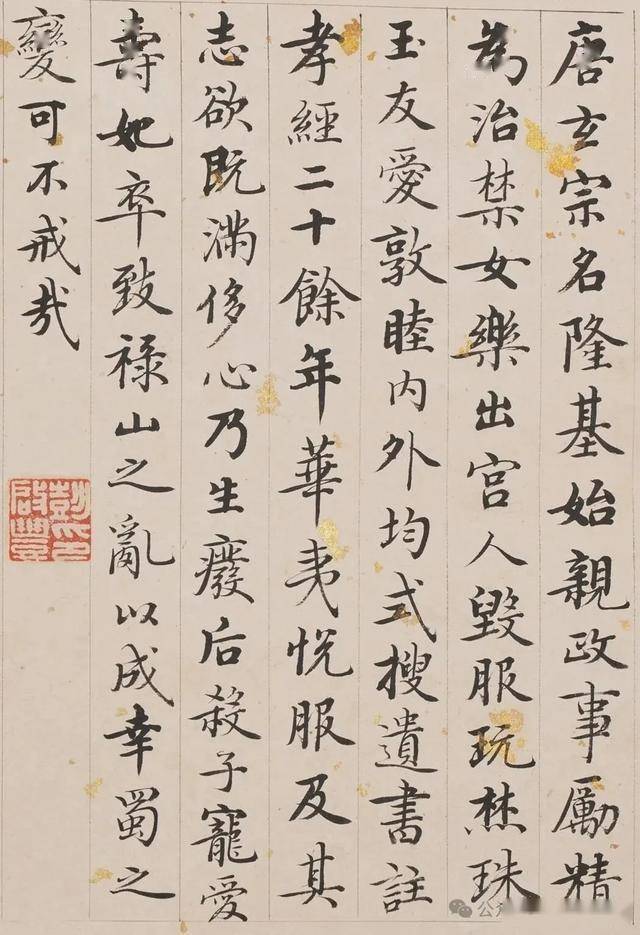 唐玄宗名隆基始親政事厲精
為治禁女樂出宮人毀服玩焚珠
玉友愛敦睦內外均式搜遺書註
孝經二十餘年華夷悅服及其
志欲既滿侈心乃生廢后殺子寵愛
壽妃卒致祿山之亂以成幸蜀之
變可不戒哉
彭啟豐印